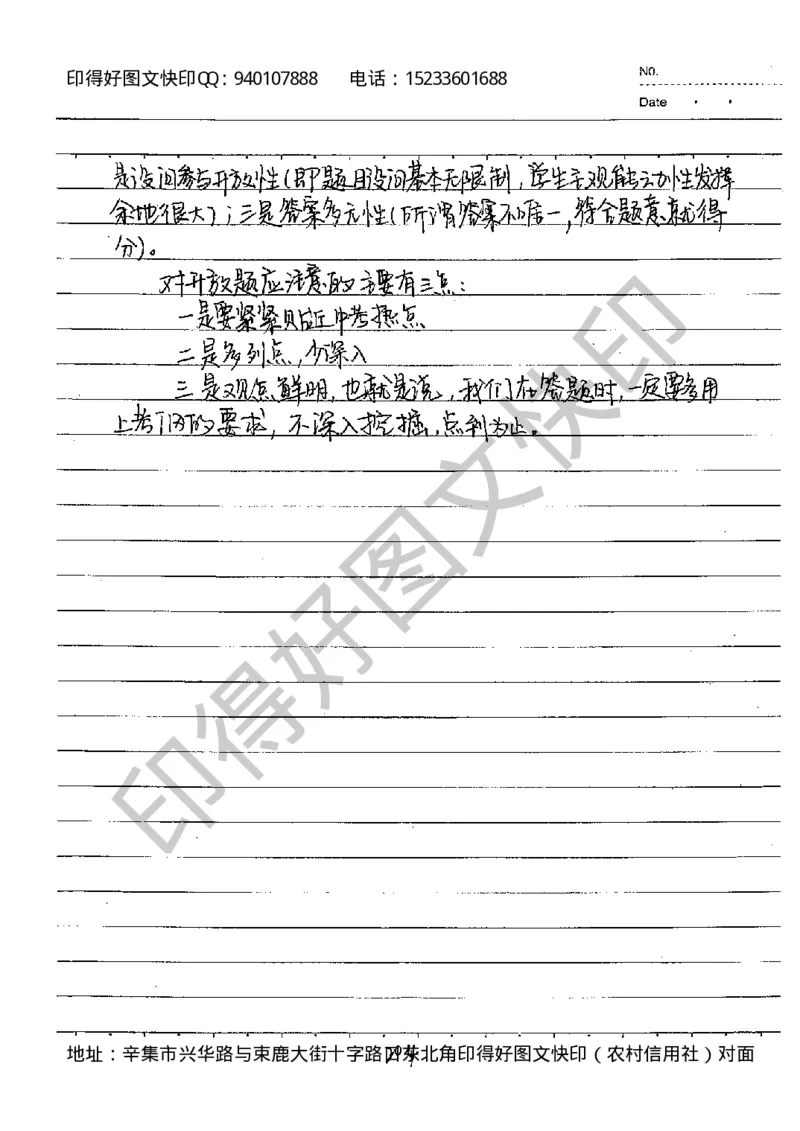 印得好图文快印QQ：940107888 电话：15233601688
No.
Date
是设问参与开放性(即题目设问基本无限制，学生主观能动性发挥
余地很大)；三是答案多元性(所谓答案不唯一，符合题意就得
分)。
对开放题应注意的主要有三点：
一是要紧紧贴近中考热点
二是多列点，少深入
三是观点鲜明，也就是说，我们在答题时，一定要多用
上考门的要求，不深入挖掘，点到为止。
印得好图文快印
地址：辛集市兴华路与束鹿大街十字路口东北角印得好图文快印（农村信用社）对面